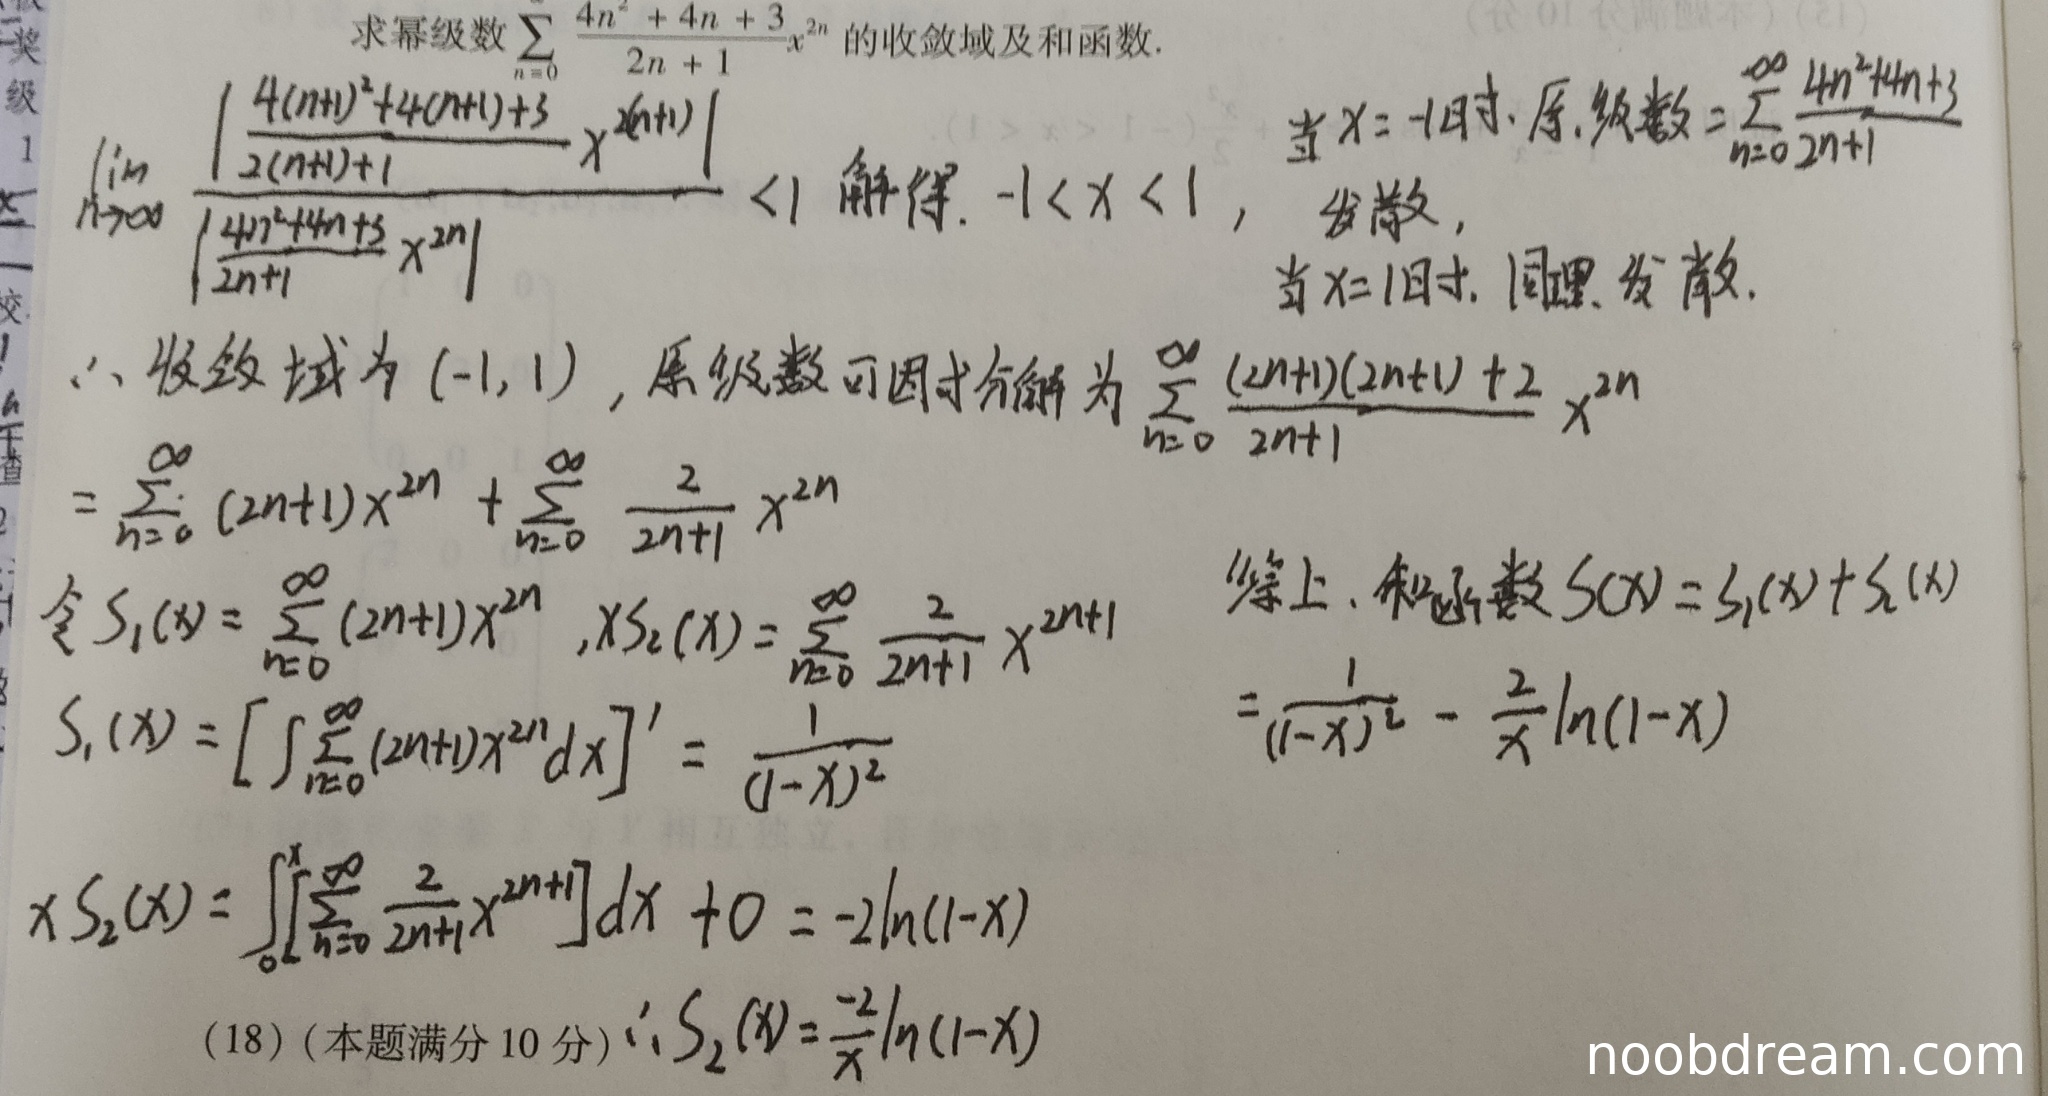 求幂级数 \sum_{n=0} \frac{4n^2 + 4n + 3}{2n + 1} x^{2n} 的收敛域及和函数.
\lim_{n→∞} \frac{|\frac{4(n+1)^2+4(n+1)+3}{2(n+1)+1} x^{2(n+1)}|}{|\frac{4n^2+4n+3}{2n+1} x^{2n}|} < 1 解得. -1 < x < 1 ,
当 x = -1时. 原.级数 = \sum_{n=0}^{∞} \frac{4n^2+4n+3}{2n+1}
发散,
当 x=1时. 同理、发散.
∴ 收敛域为 (-1, 1) , 原级数可因式分解为 \sum_{n=0}^{∞} \frac{(2n+1)(2n+1) + 2}{2n+1} x^{2n}
= \sum_{n=0}^{∞} (2n+1) x^{2n} + \sum_{n=0}^{∞} \frac{2}{2n+1} x^{2n}
令 S_1(x) = \sum_{n=0}^{∞} (2n+1) x^{2n} , x S_2(x) = \sum_{n=0}^{∞} \frac{2}{2n+1} x^{2n+1}
S_1(x) = [∫ \sum_{n=0}^{∞} (2n+1) x^{2n} dx]' = \frac{1}{(1-x)^2}
x S_2(x) = ∫_0^x [\sum_{n=0}^{∞} \frac{2}{2n+1} x^{2n+1}] dx + 0 = -2 ln(1-x)
(18) (本题满分 10 分) ∴ S_2(x) = \frac{-2}{x} ln(1-x)
综上、和函数 S(x) = S_1(x) + S_2(x)
= \frac{1}{(1-x)^2} - \frac{2}{x} ln(1-x)
noobdream.com